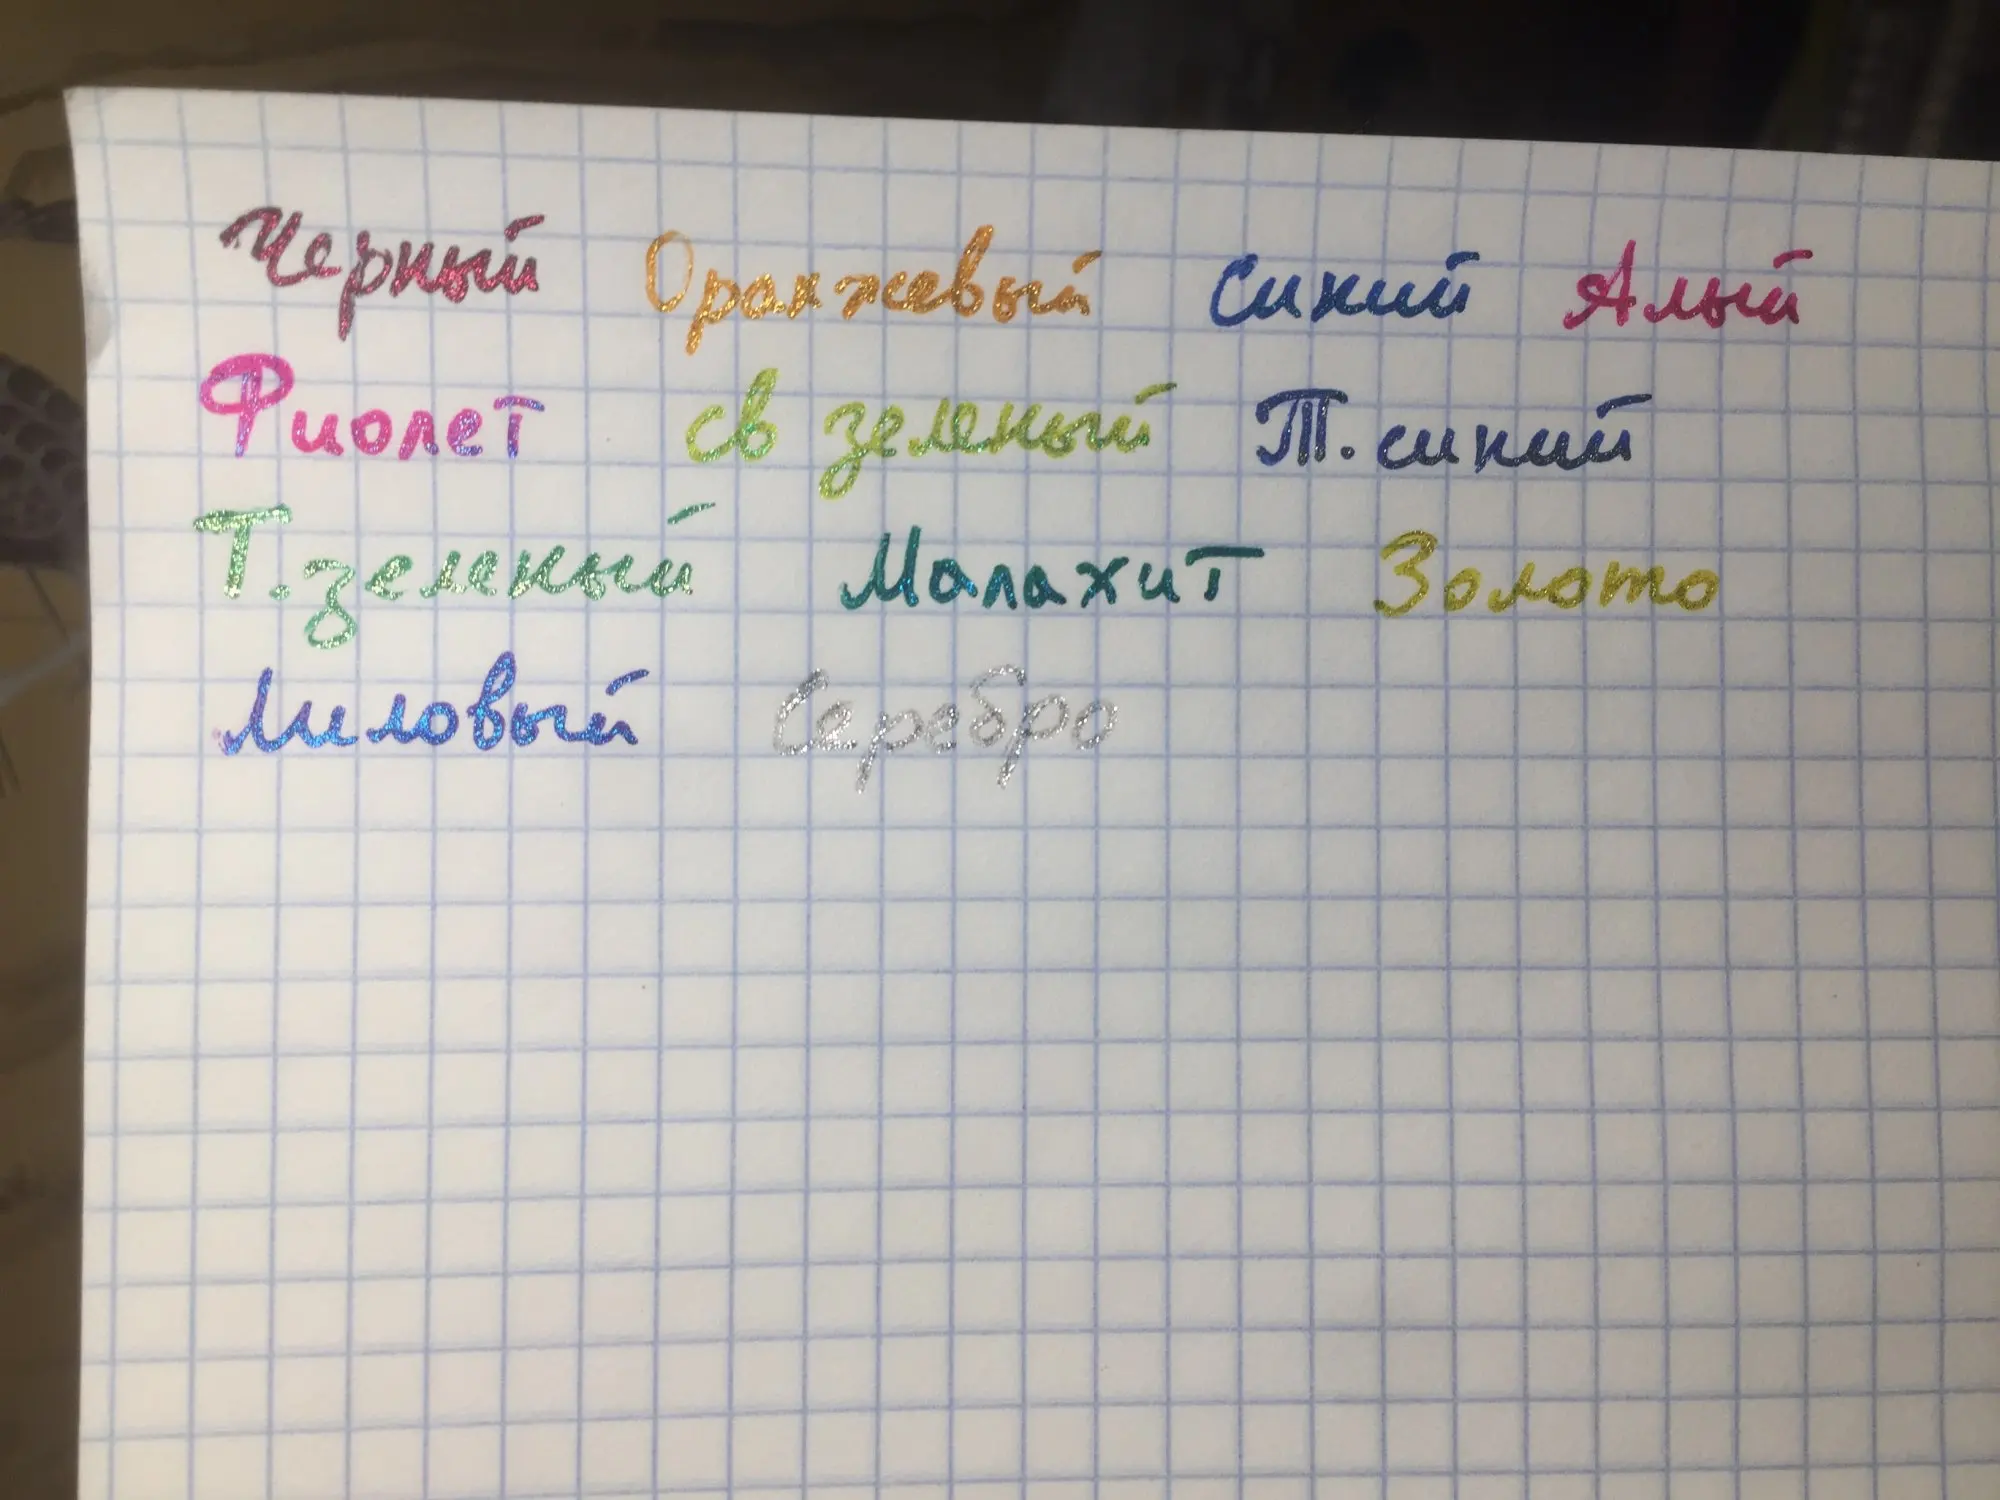 Черный Оранжевый Синий Алый
Фиолет св зеленый Т. синий
Т. зеленый Малахит Золото
Лиловый Серебро